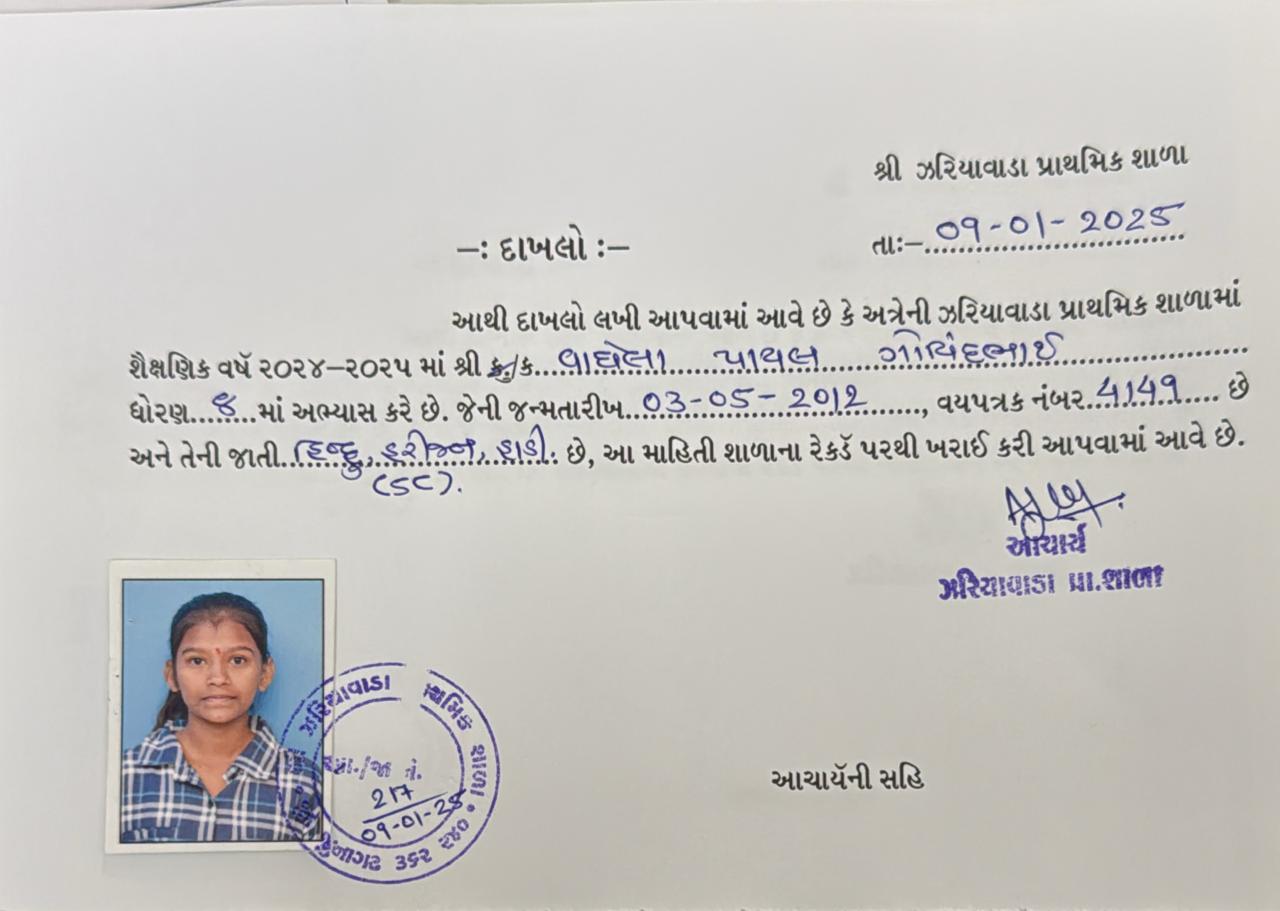 શ્રી ઝરિયાવાડા પ્રાથમિક શાળા
તાઃ– 09-01-2025
–ઃ દાખલો ઃ–
આથી દાખલો લખી આપવામાં આવે છે કે અત્રેની ઝરિયાવાડા પ્રાથમિક શાળામાં
શૈક્ષણિક વર્ષ ૨૦૨૪–૨૦૨૫ માં શ્રી કુ/ક વાઘેલા પાયલ ગોવિંદભાઈ
ધોરણ ૪ માં અભ્યાસ કરે છે. જેની જન્મતારીખ 03-05-2012, વયપત્રક નંબર 4149 છે
અને તેની જાતી હિન્દુ, હરીજન, હાડી. છે, આ માહિતી શાળાના રેકર્ડ પરથી ખરાઈ કરી આપવામાં આવે છે.
(SC).
આચાર્ય
ઝરિયાવાડા પ્રા.શાળા
ઝરિયાવાડા પ્રાથમિક શાળા
217
09-01-25
આચાર્યની સહિ